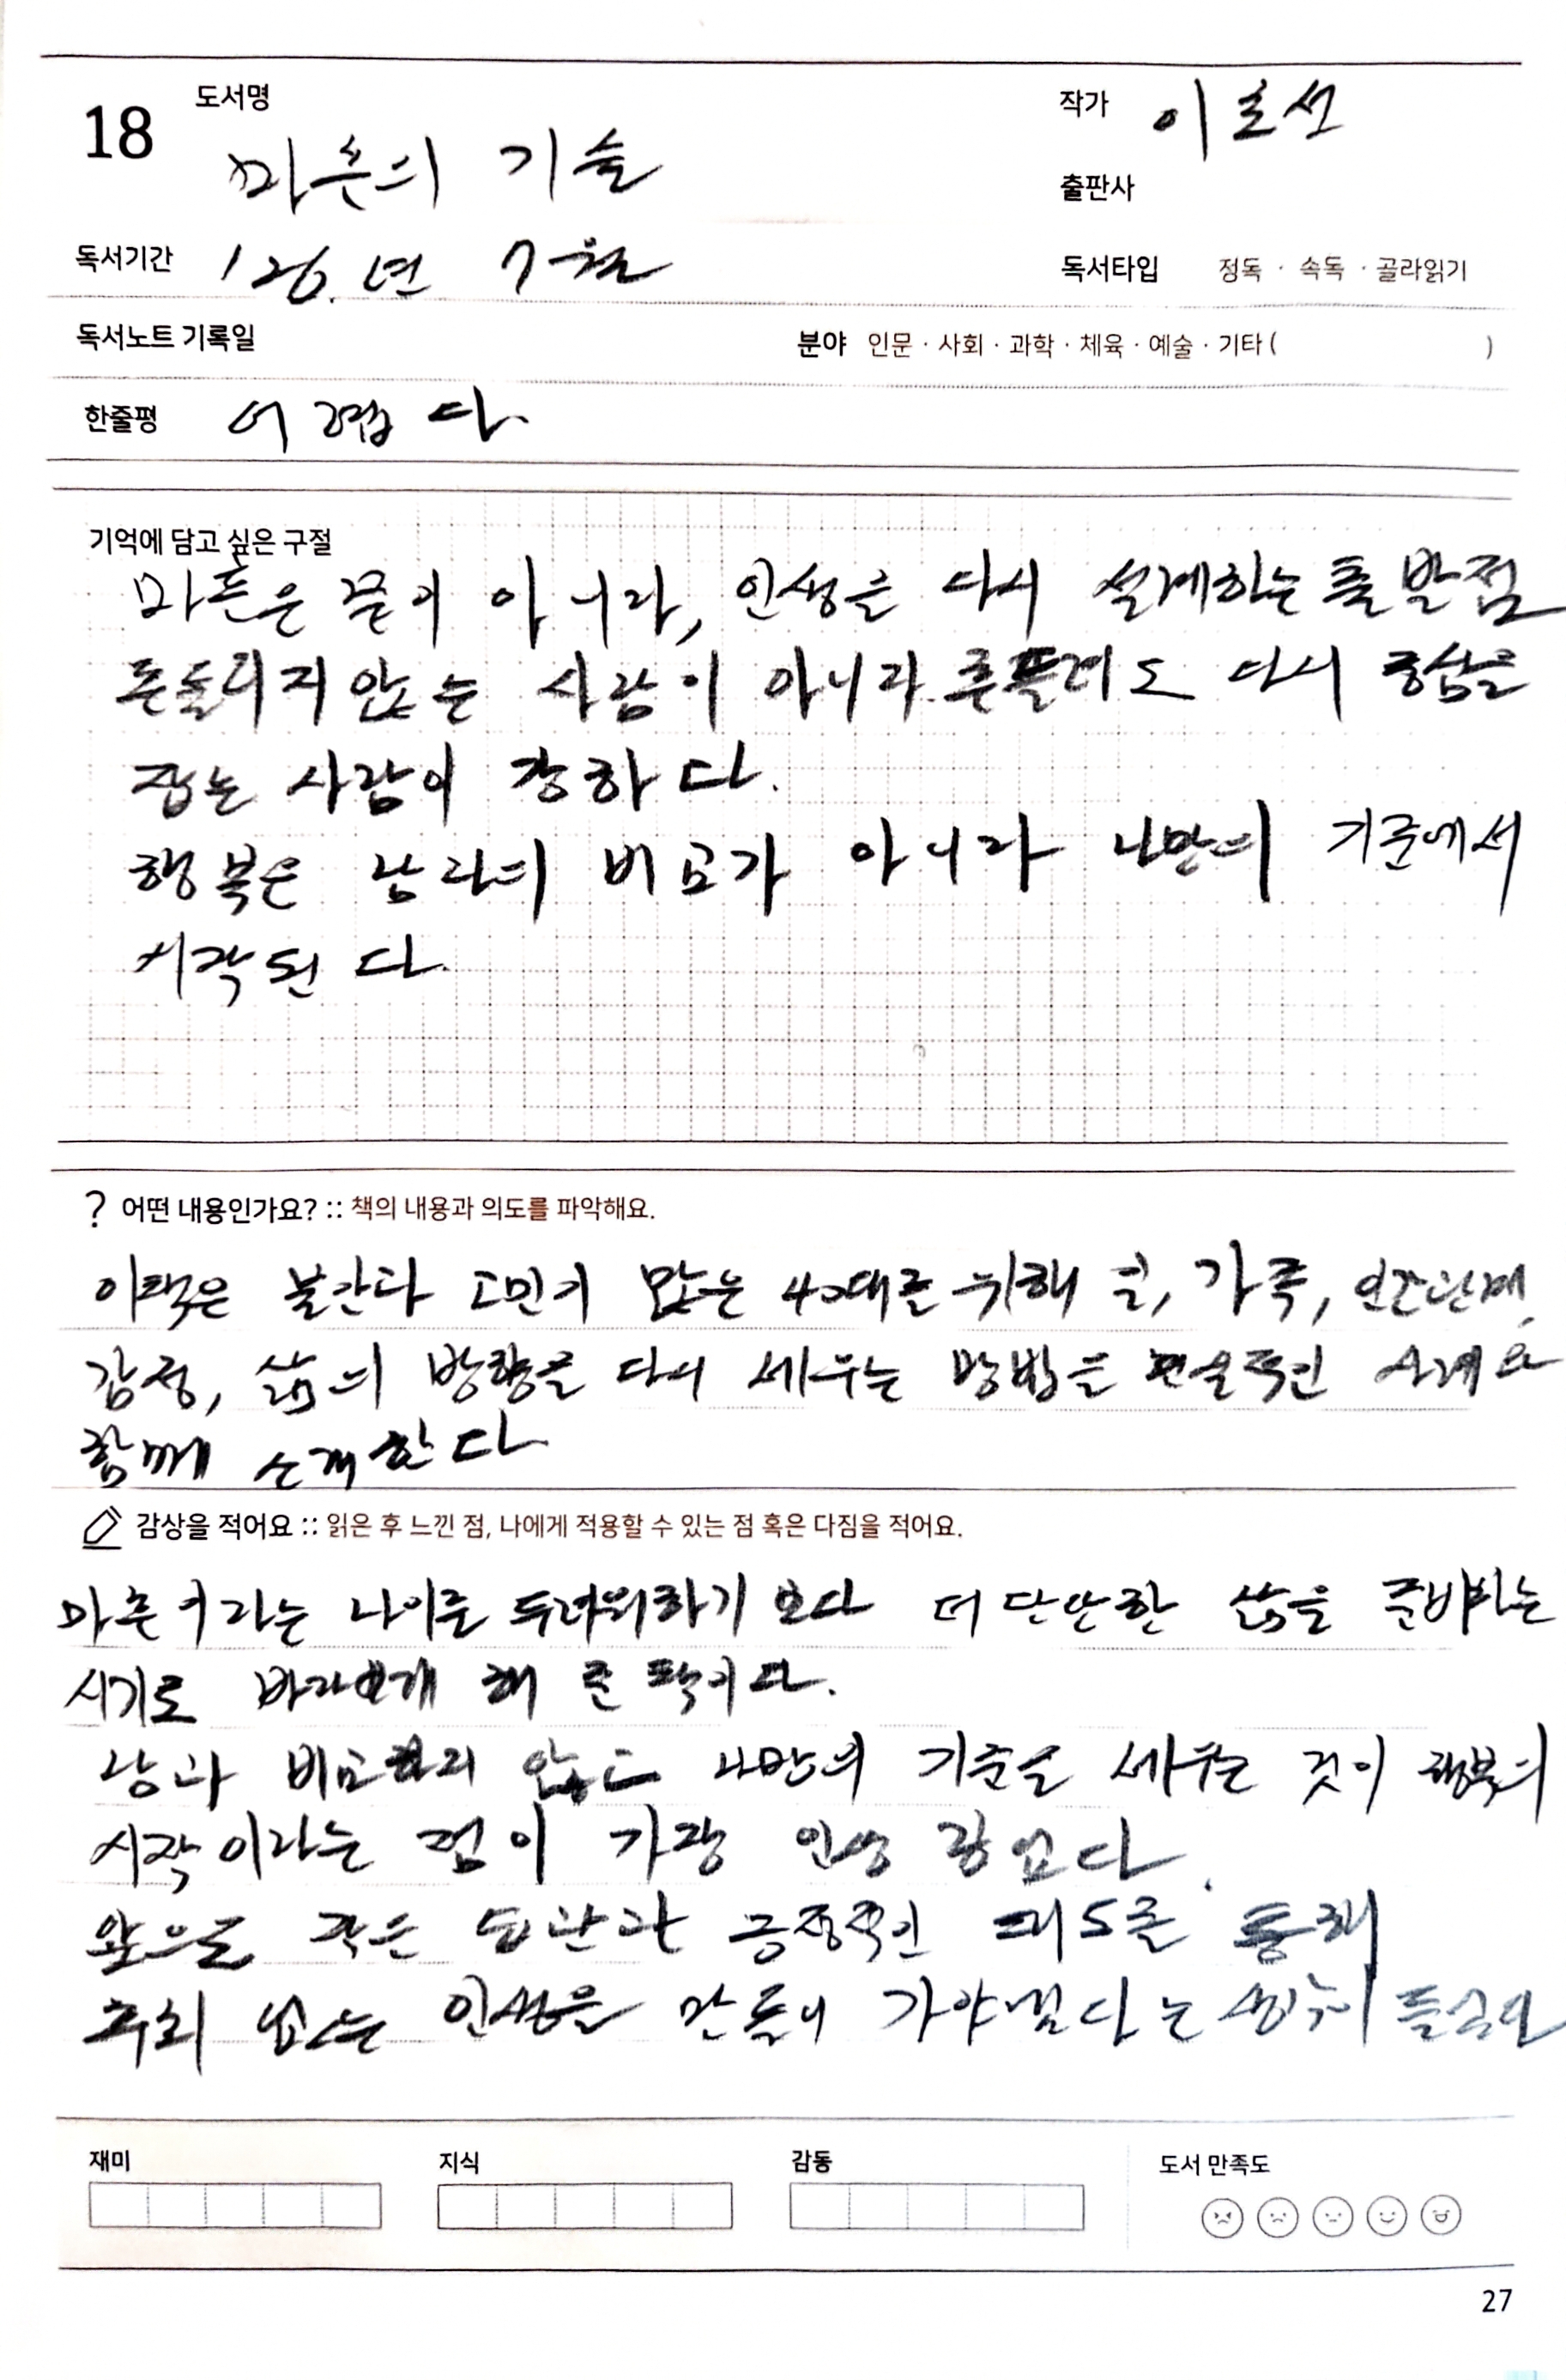 18 도서명 마흔의 기술
작가 이호선
출판사
독서기간 '26.년 7월
독서타입 정독 · 속독 · 골라읽기
독서노트 기록일
분야 인문 · 사회 · 과학 · 체육 · 예술 · 기타 ( )
한줄평 어렵다.
기억에 담고 싶은 구절
마흔은 끝이 아니라, 인생을 다시 설계하는 출발점
흔들리지 않는 사람이 아니라 흔들려도 다시 중심을
잡는 사람이 강하다.
행복은 남과의 비교가 아니라 나만의 기준에서
시작된다.
? 어떤 내용인가요? :: 책의 내용과 의도를 파악해요.
이책은 불안과 고민이 많은 40대를 위해 일, 가족, 인간관계,
감정, 삶의 방향을 다시 세우는 방법을 현실적인 사례와
함께 소개한다
감상을 적어요 :: 읽은 후 느낀 점, 나에게 적용할 수 있는 점 혹은 다짐을 적어요.
마흔이라는 나이를 두려워하기 보다 더 단단한 삶을 준비하는
시기로 바라보게 해 준 책이다.
남과 비교하지 않고 나만의 기준을 세우는 것이 행복의
시작이라는 점이 가장 인상 깊었다.
앞으로 작은 습관과 긍정적인 태도를 통해
후회 없는 인생을 만들어 가야겠다는 생각이 들었다
재미
지식
감동
도서 만족도
27